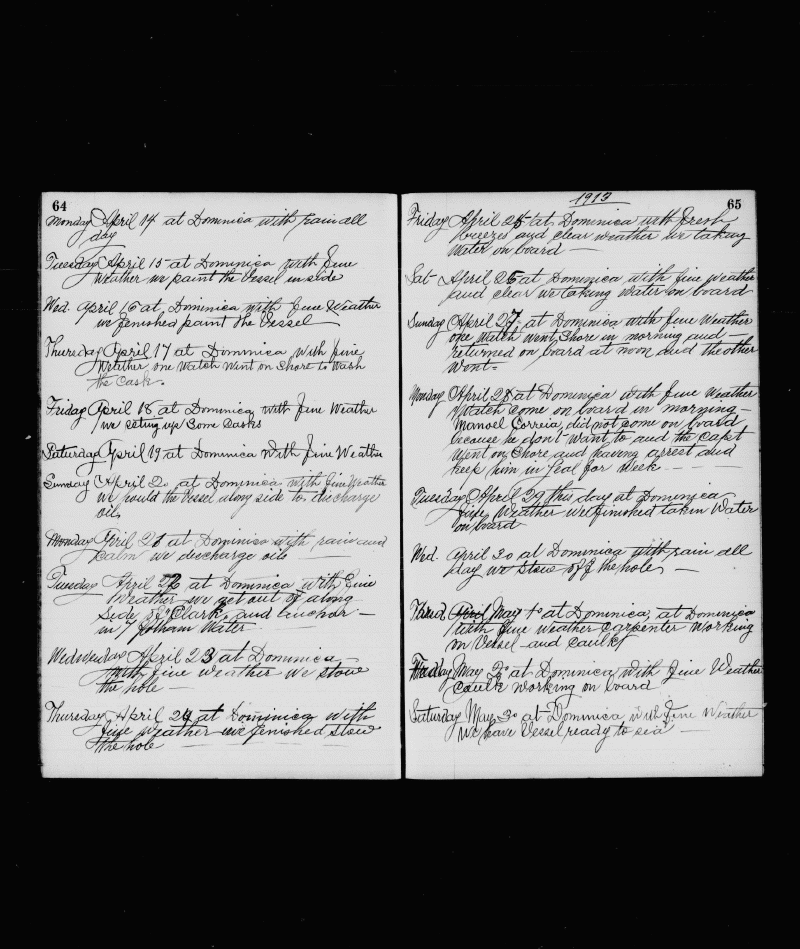 64
Monday April 14 at Dominica with rain all
day
Tuesday April 15 at Dominica with fine
Weather we paint the Vessel in side
Wed. April 16 at Dominica with fine Weather
we finished paint the Vessel
Thursday April 17 at Dominica with fine
Wether one Watch went on Shore to Wash
the Cask.
Friday April 18 at Dominica with fine Weather
we seting up Some Casks
Saturday April 19 at Dominica With fine Weather
Sunday April 20 at Dominica with fine Weather
we hould the Vessel along side to discharge
oils
Monday April 21 at Dominica with rain and
Calm we discharge oils
Tuesday April 22 at Dominica with fine
Weather we get out of along
Side of Clark, and anchor —
in Water
Wednesday April 23 at Dominica —
with fine weather we stow
the hole —
Thursday April 24 at Dominica with
fine weather we finished stow
the hole
1913
65
Friday April 25 at Dominica with fresh
breezes and clear weather we taking
Water on board —
Sat April 26 at Dominica with fine weather
and clear we taking Water on board
Sunday April 27, at Dominica with fine Weather
one Watch went Shore in morning and
returned on board at noon and the other
Went =
Monday April 28 at Dominica with fine Weather
Watch come on board in morning —
Manoel Correia, did not come on board
because he don't want to and the Capt
went on Shore and having arrest and
keep him in Jeal for Week — — —
Tuesday April 29 this day at Dominica
fine Weather we finished taken Water
on board
Wed. April 30 at Dominica with rain all
day we stow off the hole —
May 1° at Dominica, at Dominica
with fine weather Carpenter Working
in Vessel and caulk
May 2° at Dominica with fine Weather
Caulk Working on board
Saturday May 3° at Dominica with fine Weather
We have Vessel ready to sea —